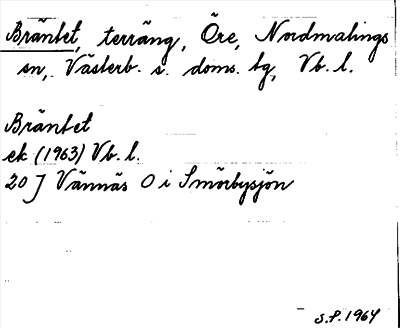 Bräntet, terräng, Öre, Nordmalings
sn, Västerb. s. doms. tg, Vb. l.
Bräntet
ek (1963) Vb. l.
20 J Vännäs O i Smörbysjön
S.P. 1964